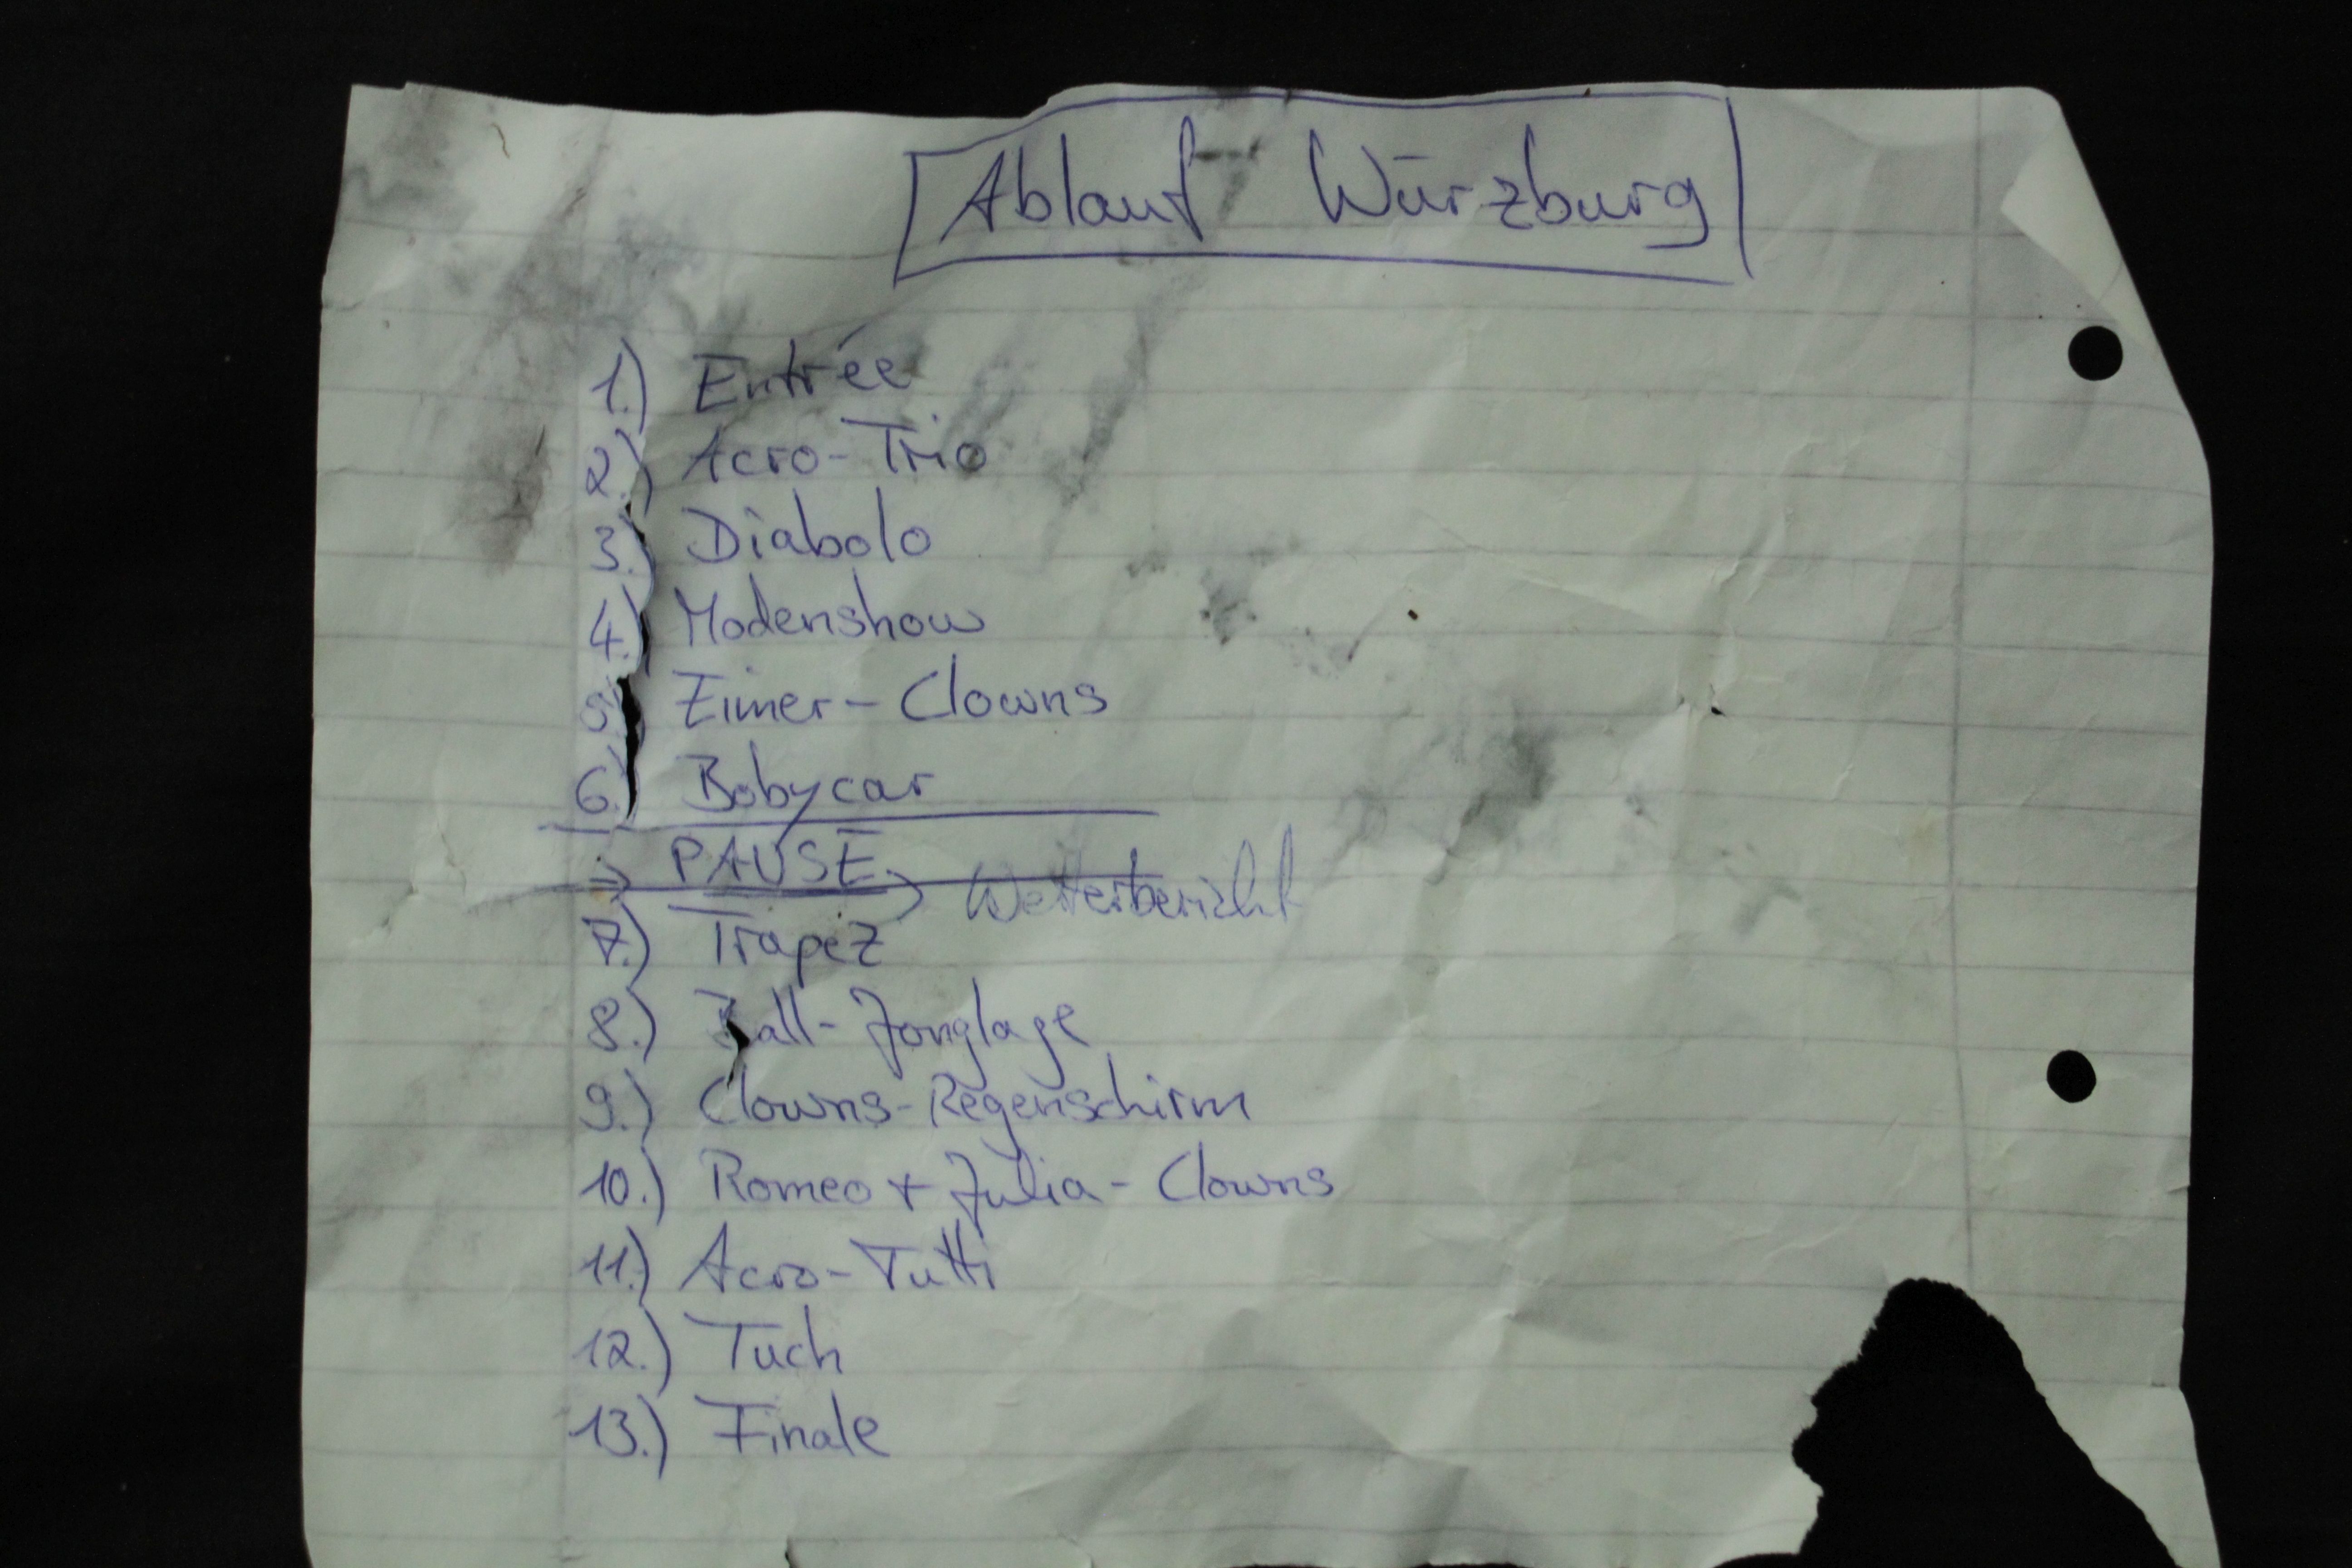 Ablauf Würzburg
1.) Entrée
2.) Acro-Trio
3.) Diabolo
4.) Modenshow
5.) Eimer-Clowns
6.) Bobycar
→ PAUSE
→ Wetterbericht
7.) Trapez
8.) Ball-Jonglage
9.) Clowns-Regenschirm
10.) Romeo + Julia-Clowns
11.) Acro-Tutti
12.) Tuch
13.) Finale